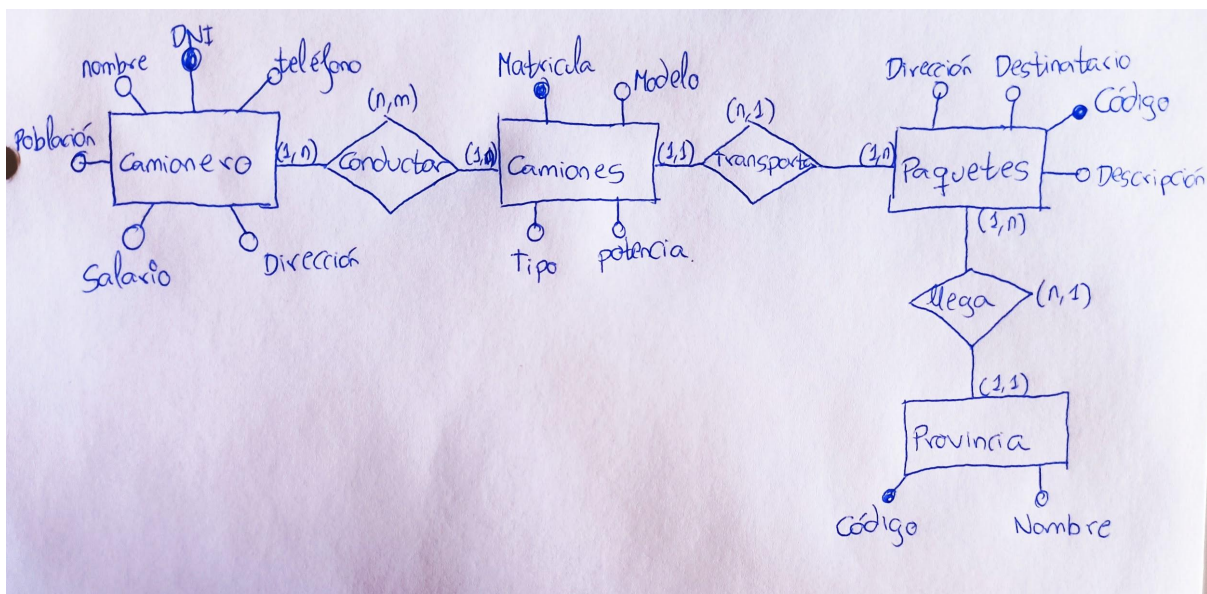 DNI
nombre
teléfono
Población
Camionero
Salario
Dirección
(1,n)
(n,m)
Conductor
Matricula
Modelo
Camiones
Tipo
potencia.
(1,1)
(n,1)
transporta
(1,n)
Dirección
Destinatario
Código
Paquetes
Descripción
(1,n)
llega
(n,1)
(1,1)
Provincia
Código
Nombre